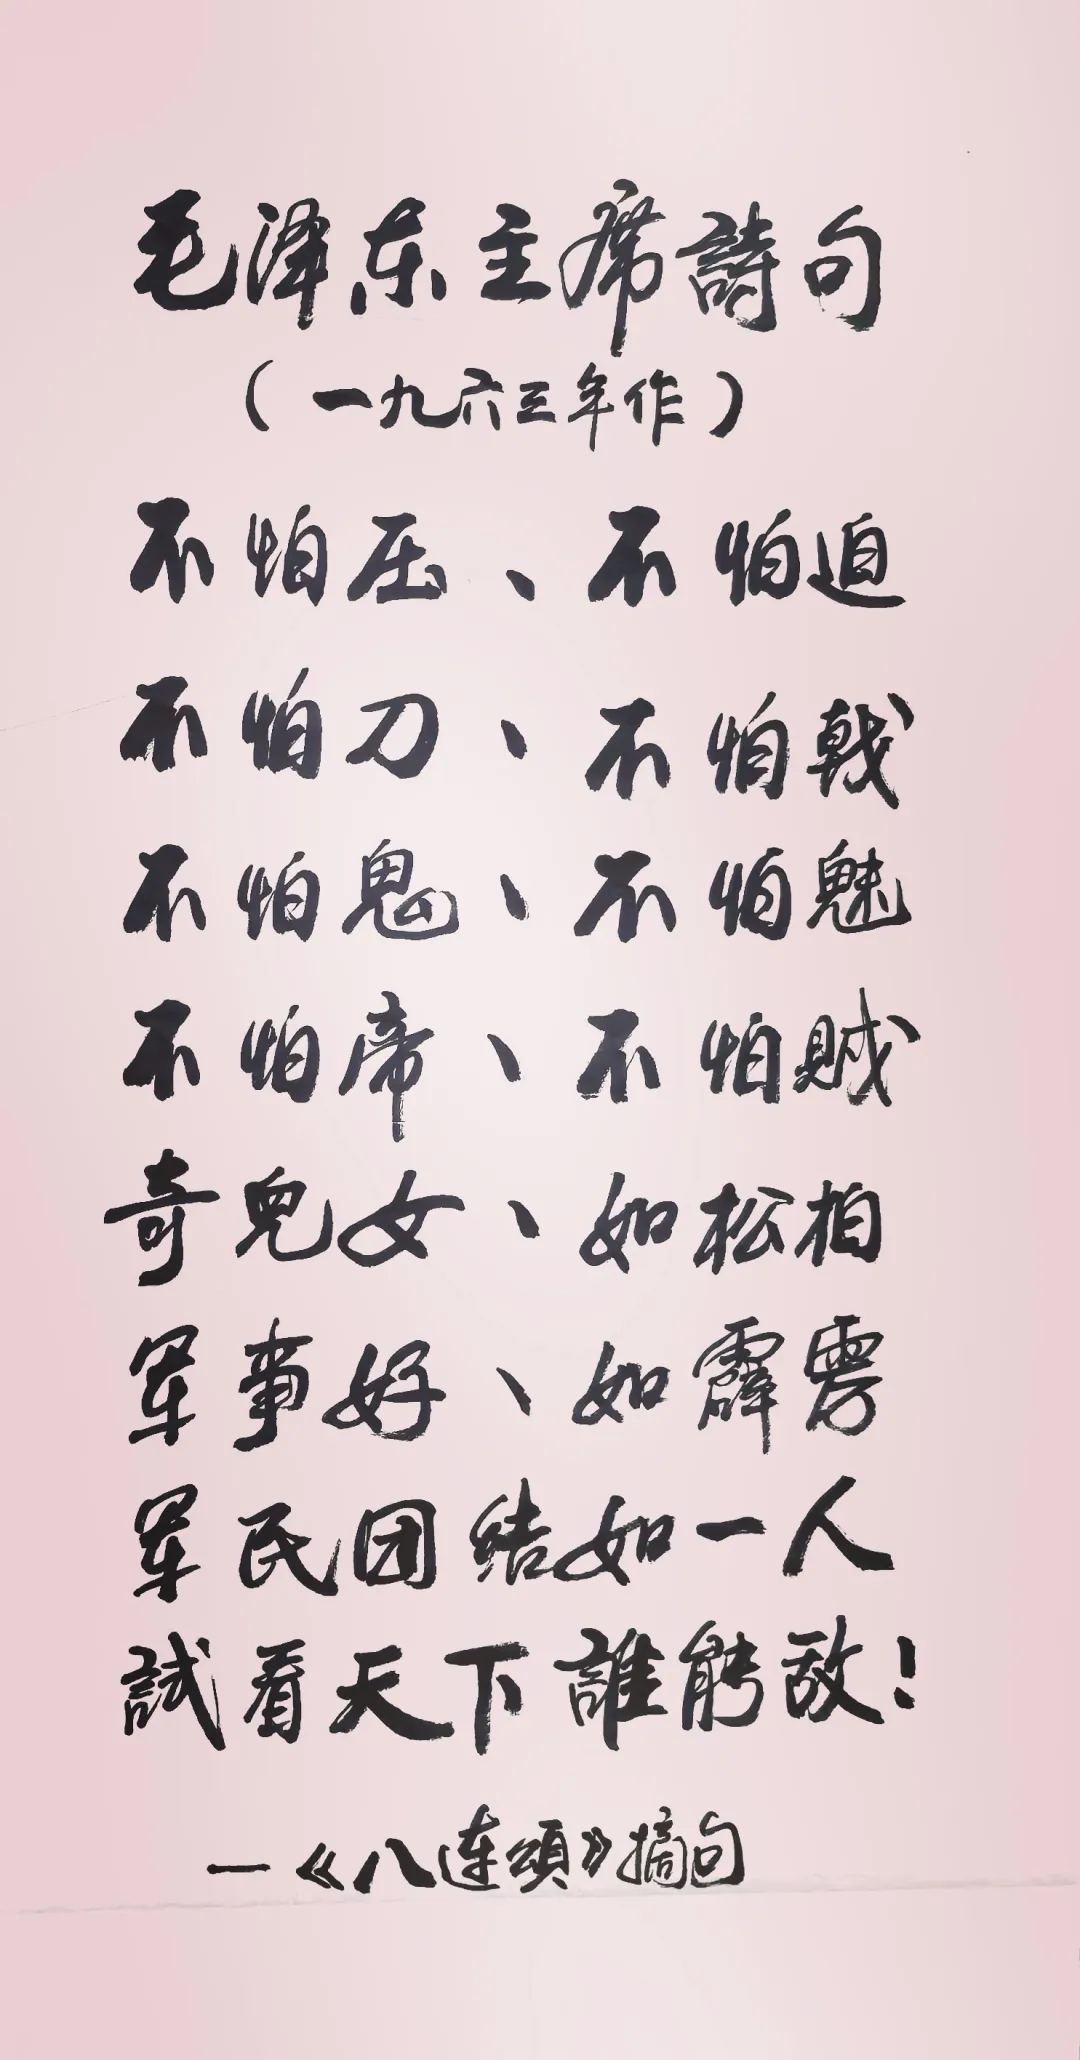 毛泽东主席詩句
（一九六三年作）
不怕压、不怕迫
不怕刀、不怕戟
不怕鬼、不怕魅
不怕帝、不怕贼
奇兒女、如松柏
军事好、如霹雳
军民团结如一人
試看天下誰能敌！
—《八连頌》摘句